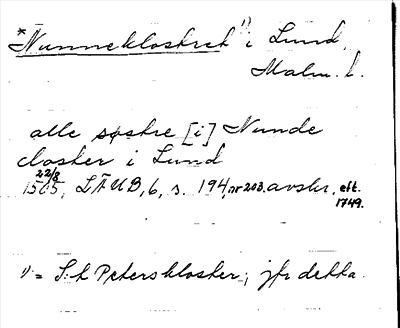 *Nunneklostret 1) i Lund,
Malm. l.
alle søstre [i] Nunde
closter i Lund
22/8
1505, LÄUB, 6, s. 194, nr 203. avskr. eft.
1749.
1) = S:t Peterskloster; jfr detta.